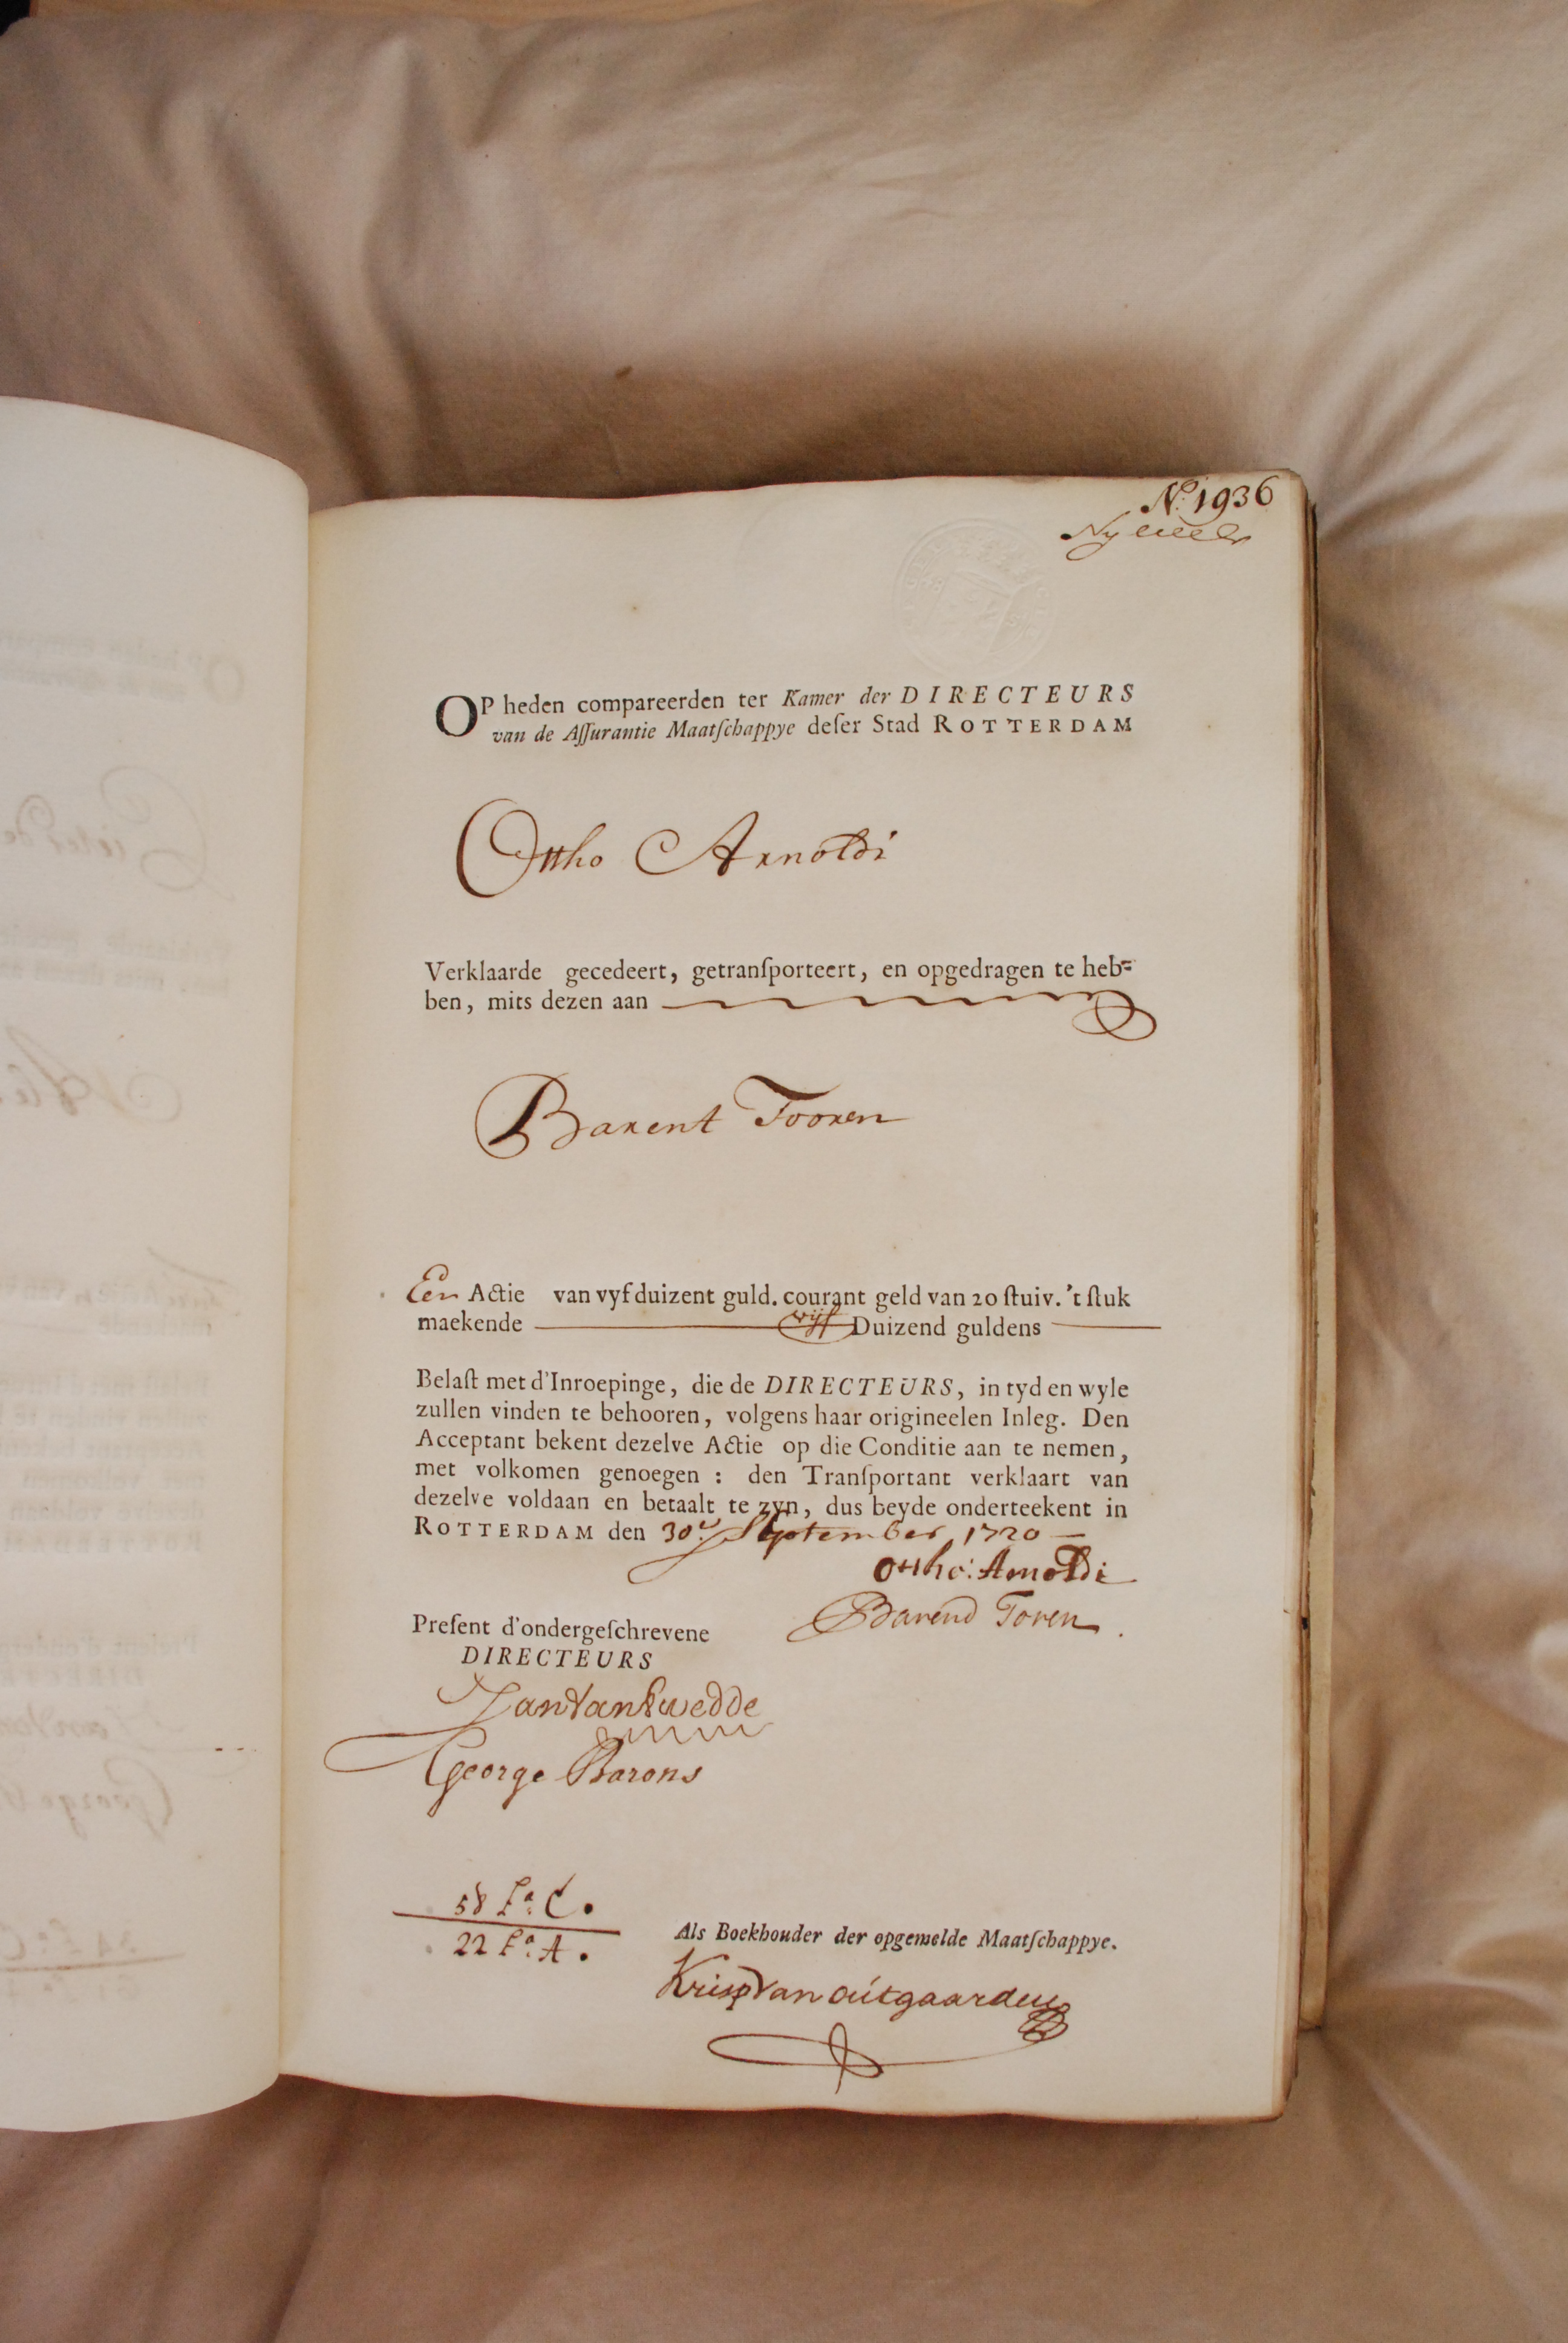 N.º 1936
OP heden compareerden ter Kamer der DIRECTEURS
van de Aſſurantie Maatſchappye deſer Stad ROTTERDAM
Ottho Arnoldi
Verklaarde gecedeert, getranſporteert, en opgedragen te heb-
ben, mits dezen aan
Barent Tooren
Een Actie van vyf duizent guld. courant geld van 20 ſtuiv. 't ſtuk
maekende vijf Duizend guldens
Belaſt met d'Inroepinge, die de DIRECTEURS, in tyd en wyle
zullen vinden te behooren, volgens haar origineelen Inleg. Den
Acceptant bekent dezelve Actie op die Conditie aan te nemen,
met volkomen genoegen : den Tranſportant verklaart van
dezelve voldaan en betaalt te zyn, dus beyde onderteekent in
ROTTERDAM den 30.e September 1720
Ottho: Arnoldi
Barend Toren
Preſent d'ondergeſchrevene
DIRECTEURS
Jan Van Kwedde
George Barons
58 Fº. C.
22 Fº. A.
Als Boekhouder der opgemelde Maatſchappye.
Krisp Van outgaarden